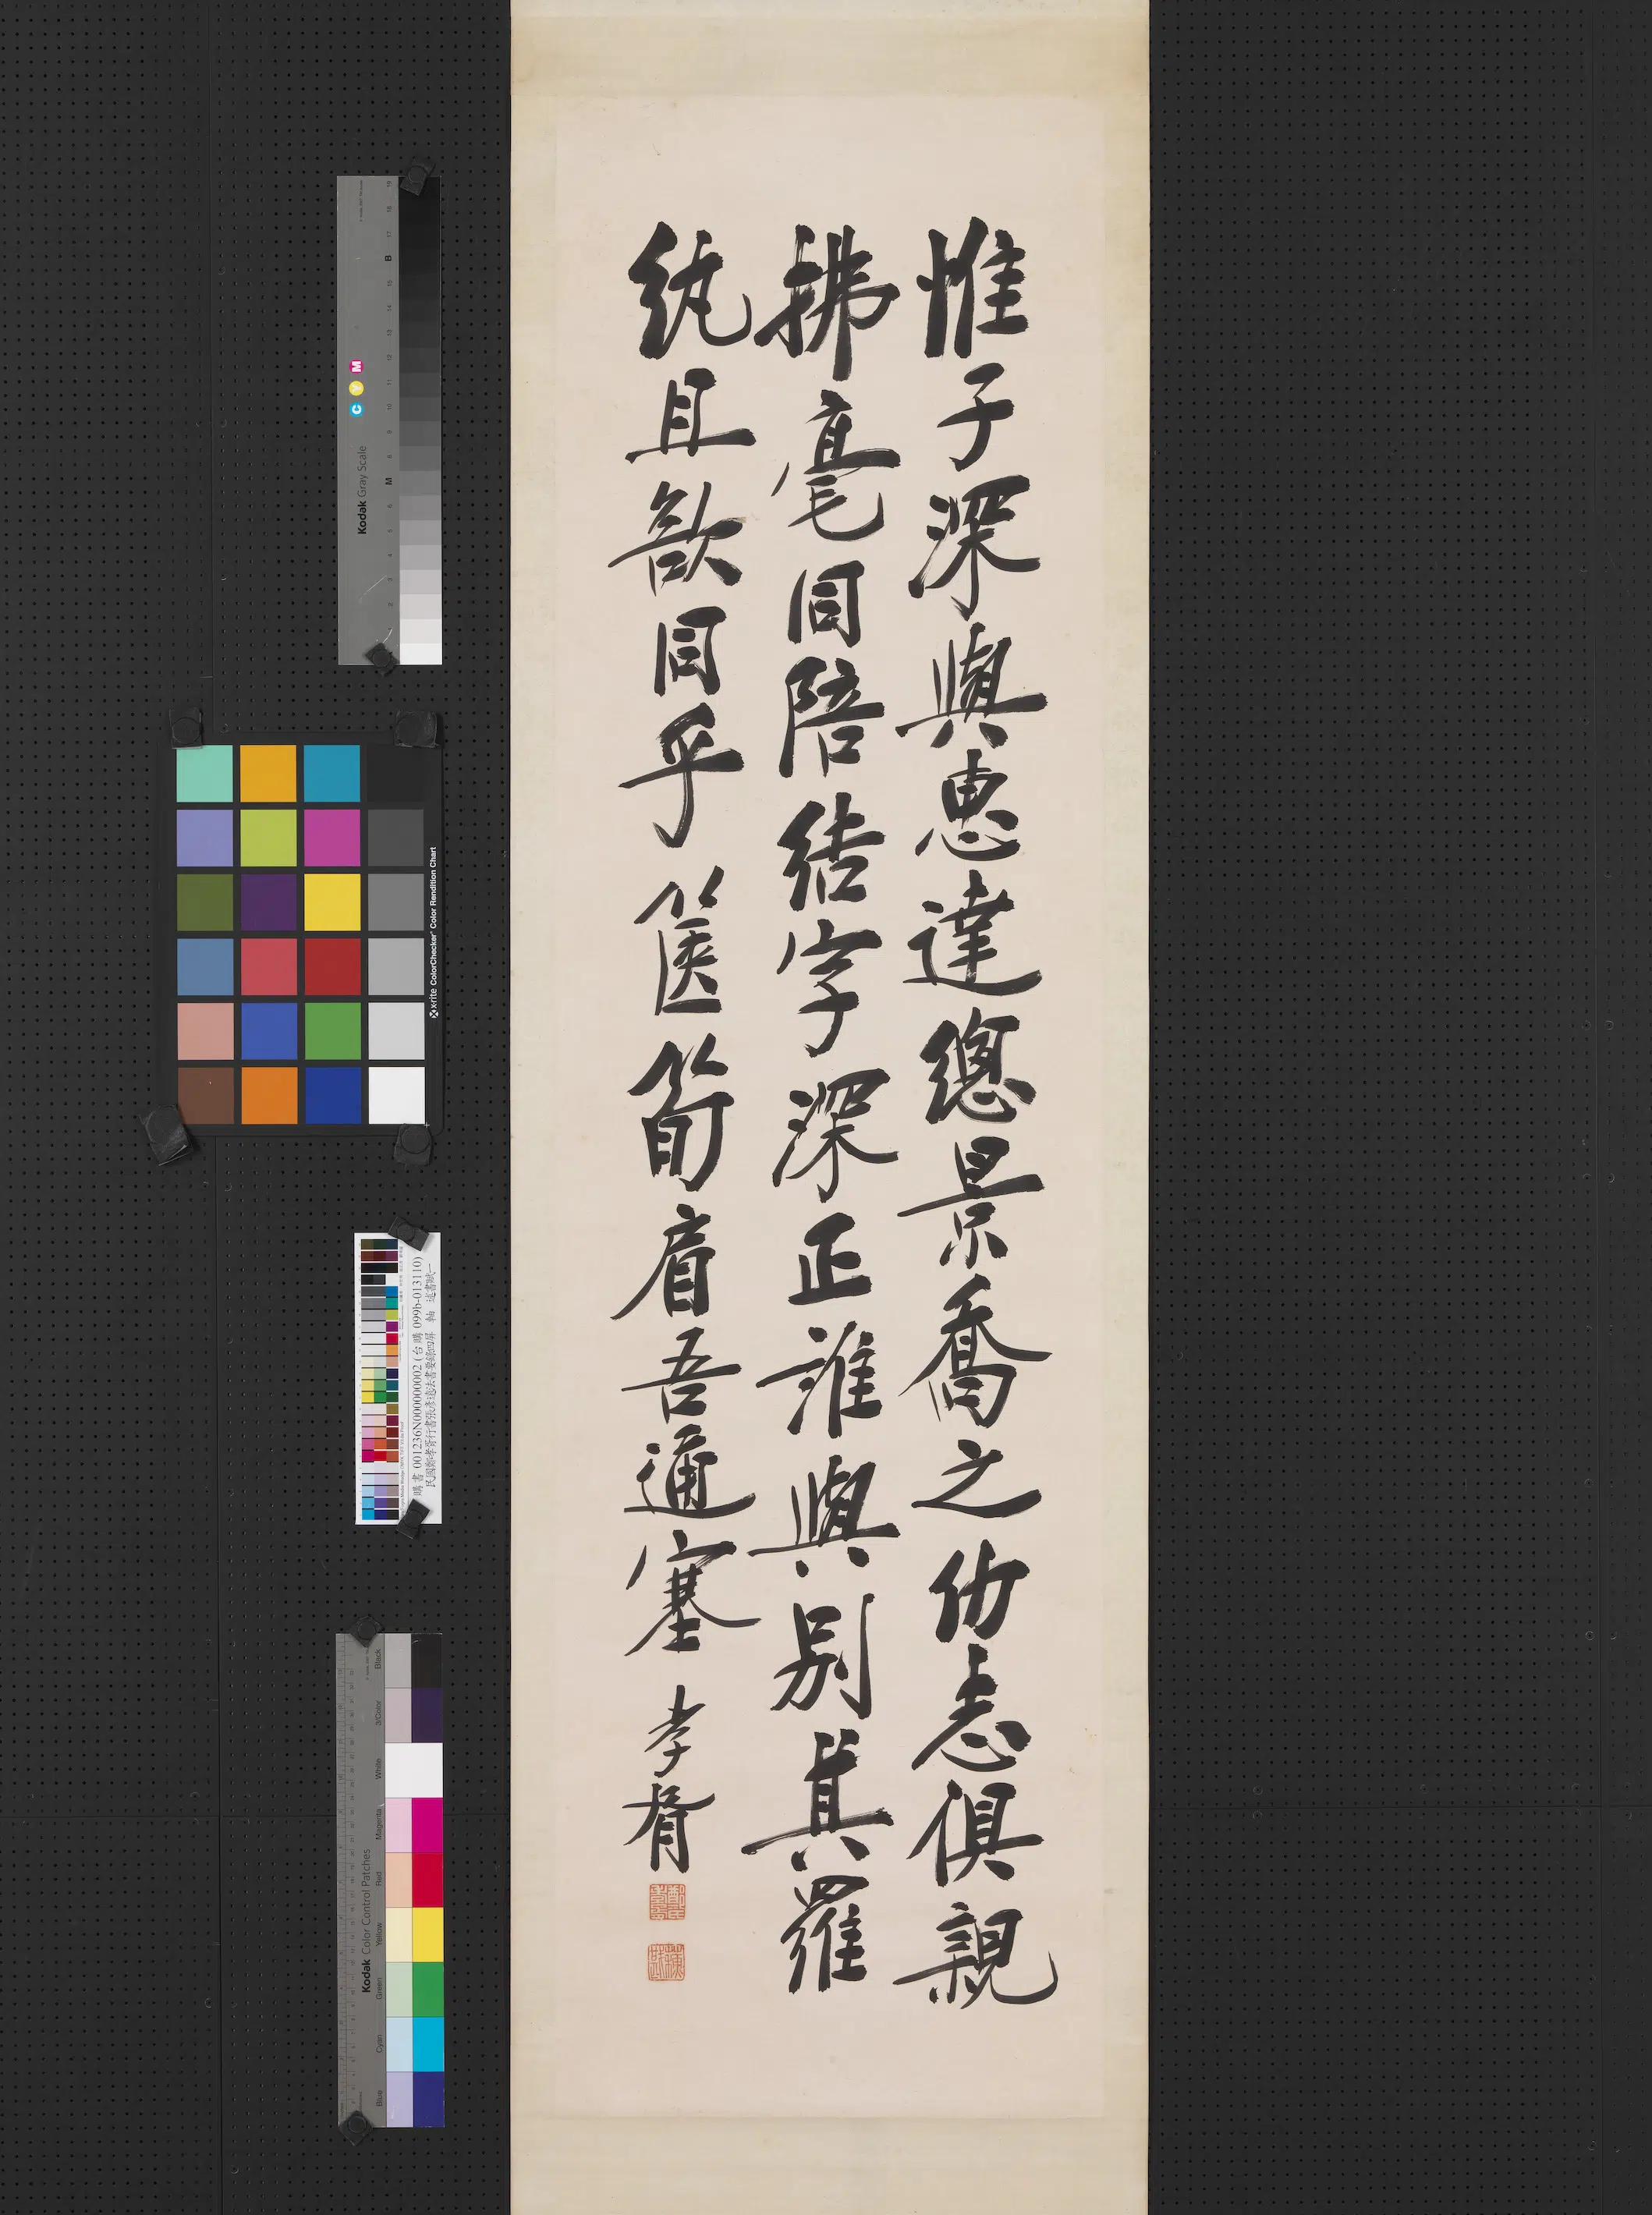 惟子深與惠達總景喬之仂志俱親
拂毫同陪結字深正誰與別其羅
紈且歆同乎篋笥眉吾通塞
孝胥
Kodak Gray Scale
C Y M
B
M
x-rite ColorChecker Color Rendition Chart
購書 001236N000000002 (台購 099b-013110)
民國鄭孝胥行書張彥遠法書要錄四屏 軸 述書賦一
Kodak Color Control Patches
Blue Cyan Green Yellow Red Magenta White 3/Color Black